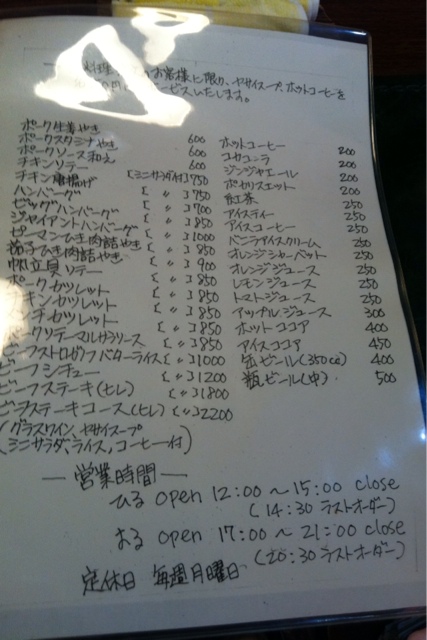 料理 お客様に限り、ヤサイスープ、ホットコーヒーを
ービスいたします。
ポーク生姜やき 600
ポークスタミナやき 600
ポークソース和え 600
チキンソテー [ミニサラダ付] 750
チキン唐揚げ [ 〃 ] 750
ハンバーグ [ 〃 ] 700
ビッグハンバーグ [ 〃 ] 850
ジャイアントハンバーグ [ 〃 ] 1000
ピーマンひき肉詰やき [ 〃 ] 850
茄子ひき肉詰やき [ 〃 ] 900
帆立貝ソテー [ 〃 ] 850
ポークカツレット [ 〃 ] 850
キンカツレット [ 〃 ] 850
ンチカツレット [ 〃 ] 850
ークソテーマルサラソース [ 〃 ] 850
ーフストロガノフバターライス [ 〃 ] 1000
ビーフシチュー [ 〃 ] 1200
ビーフステーキ(ヒレ) [ 〃 ] 1800
ビーフステーキコース(ヒレ) [ 〃 ] 2200
(グラスワイン、ヤサイスープ
ミニサラダ、ライス、コーヒー付)
ホットコーヒー 200
コカコーラ 200
ジンジャエール 200
ポカリスエット 200
紅茶 250
アイスティー 250
アイスコーヒー 250
バニラアイスクリーム 250
オレンジシャーベット 250
オレンジジュース 250
レモンジュース 250
トマトジュース 250
アップルジュース 300
ホットココア 400
アイスココア 450
缶ビール(350cc) 400
瓶ビール(中) 500
— 営業時間 —
ひる open 12:00 ～ 15:00 close
(14:30 ラストオーダー)
よる open 17:00 ～ 21:00 close
(20:30 ラストオーダー)
定休日 毎週月曜日